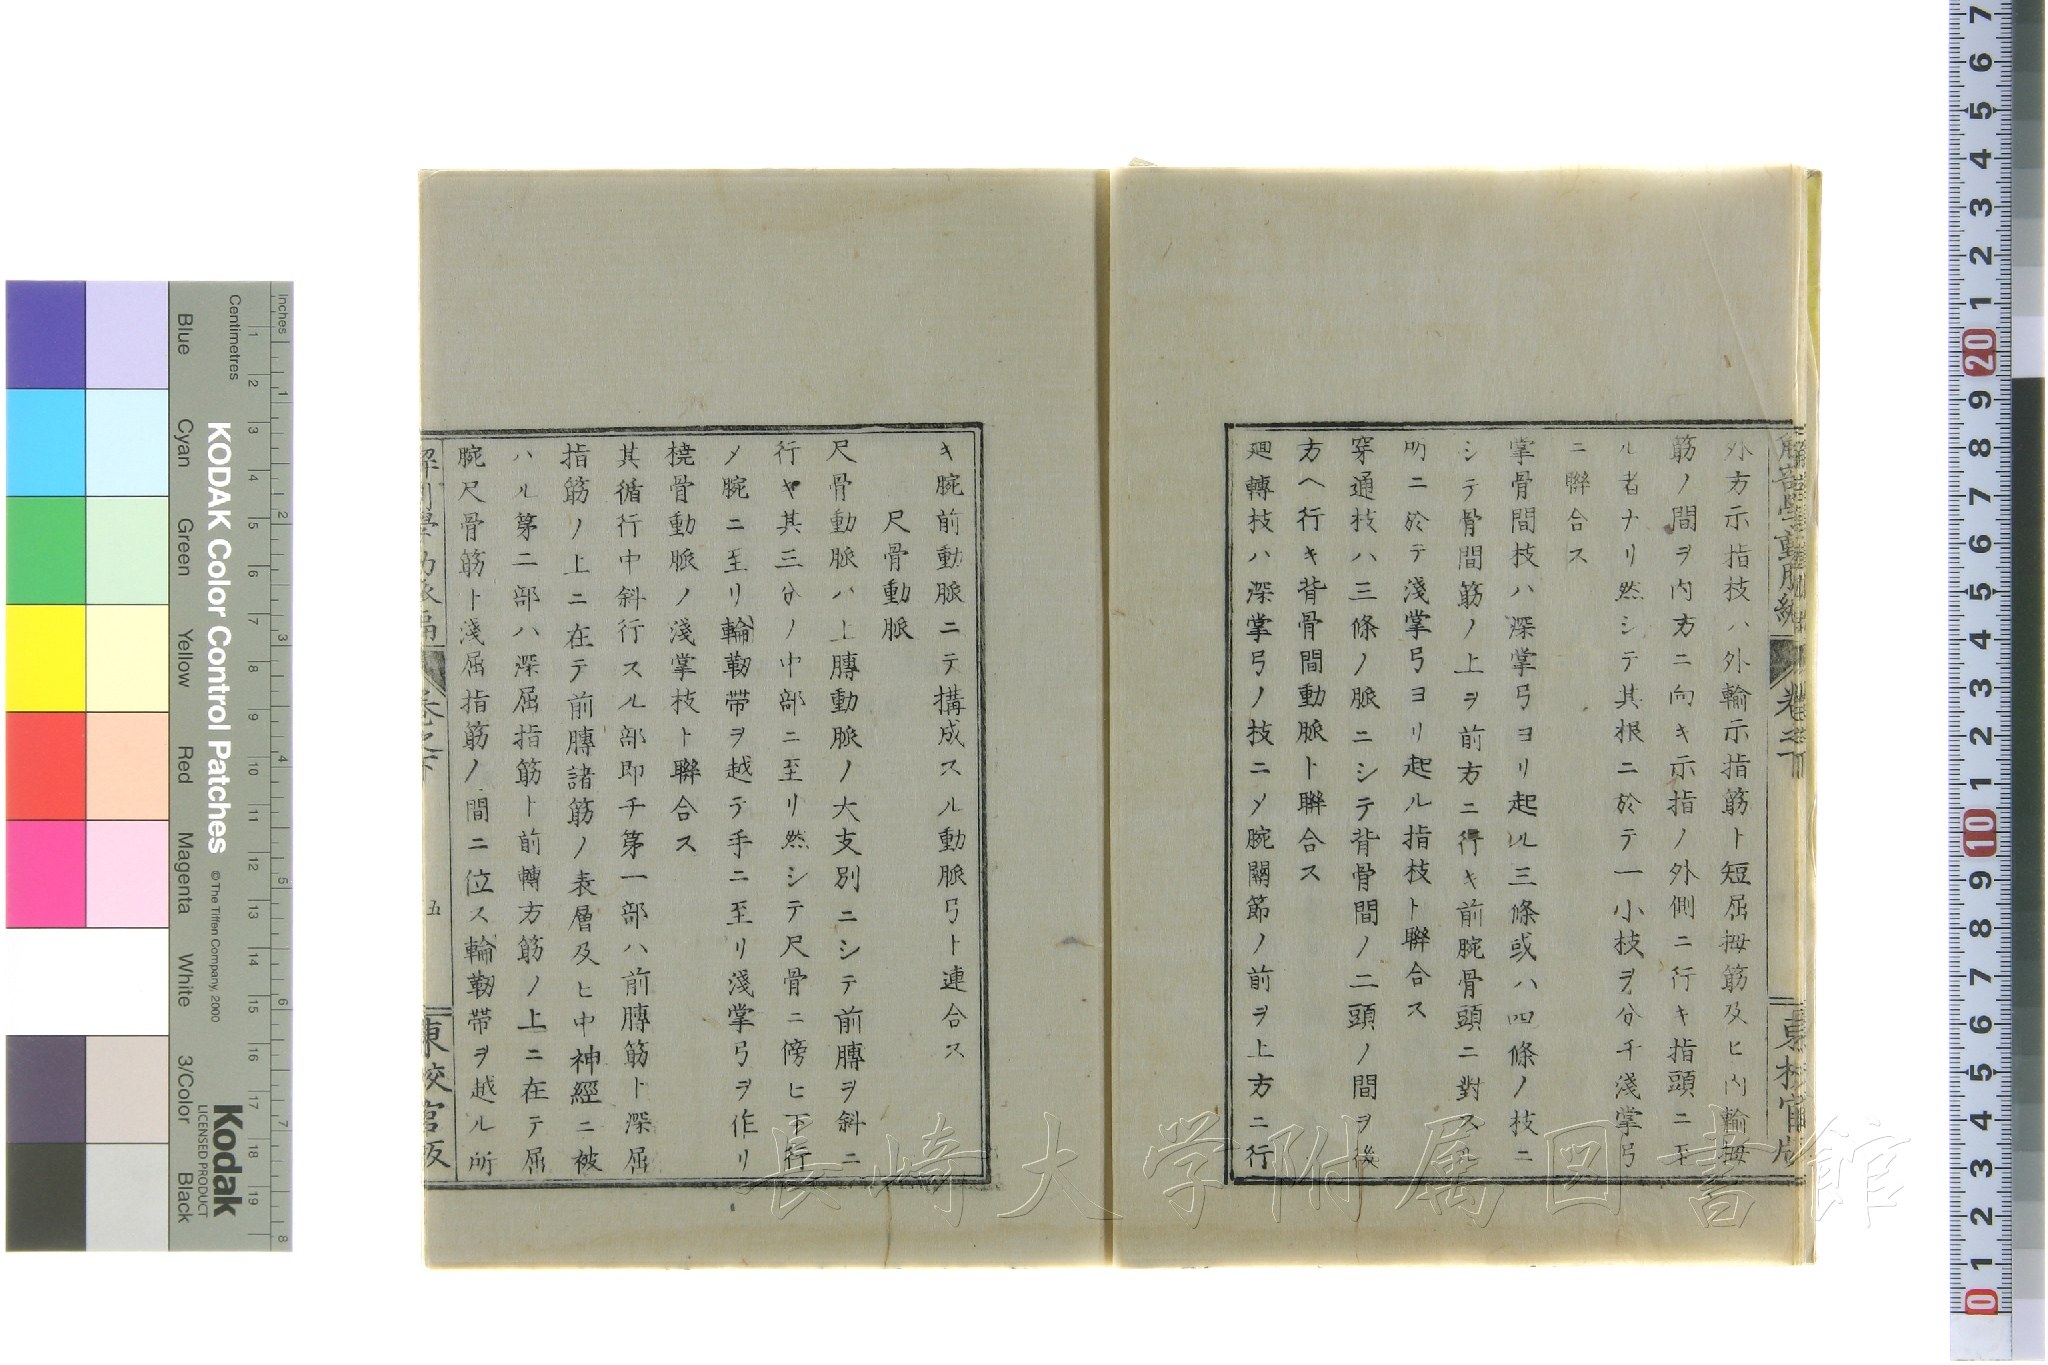 解剖學動脈編
卷之下
東校官版
外方示指枝ハ外輸示指筋ト短屈拇筋及ヒ内輸拇
筋ノ間ヲ内方ニ向キ示指ノ外側ニ行キ指頭ニ至
ル者ナリ然シテ其根ニ於テ一小枝ヲ分チ淺掌弓
ニ聯合ス
掌骨間枝ハ深掌弓ヨリ起ル三條或ハ四條ノ枝ニ
シテ骨間筋ノ上ヲ前方ニ行キ前腕骨頭ニ對スル
所ニ於テ淺掌弓ヨリ起ル指枝ト聯合ス
穿通枝ハ三條ノ脈ニシテ背骨間ノ二頭ノ間ヲ後
方ヘ行キ背骨間動脈ト聯合ス
廻轉枝ハ深掌弓ノ枝ニメ腕關節ノ前ヲ上方ニ行
キ腕前動脈ニテ搆成スル動脈弓ト連合ス
尺骨動脈
尺骨動脈ハ上膊動脈ノ大支別ニシテ前膊ヲ斜ニ
行キ其三分ノ中部ニ至リ然シテ尺骨ニ傍ヒ下行
メ腕ニ至リ輪靭帶ヲ越テ手ニ至リ淺掌弓ヲ作リ
橈骨動脈ノ淺掌枝ト聯合ス
其循行中斜行スル部即チ第一部ハ前膊筋ト深屈
指筋ノ上ニ在テ前膊諸筋ノ表層及ヒ中神經ニ被
ハル第二部ハ深屈指筋ト前轉方筋ノ上ニ在テ屈
腕尺骨筋ト淺屈指筋ノ間ニ位ス輪靭帶ヲ越ル所
解剖學動脈編
卷之下
五
東校官版
長崎大学附属図書館
KODAK Color Control Patches
© The Tiffen Company, 2000
Kodak
LICENSED PRODUCT
Inches
Centimetres
Blue
Cyan
Green
Yellow
Red
Magenta
White
3/Color
Black